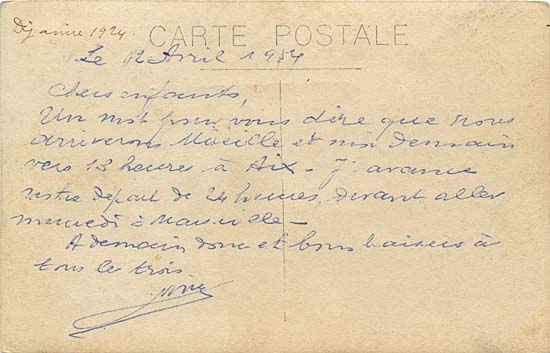 Dij année 1924
CARTE POSTALE
Le 12 Avril 1954
Chers enfants,
Un mot pour vous dire que nous
arriverons Mireille et moi demain
vers 13 heures à Aix - J'avance
notre départ de 24 heures, devant aller
mercredi à Marseille -
A demain donc et bons baisers à
tous les trois